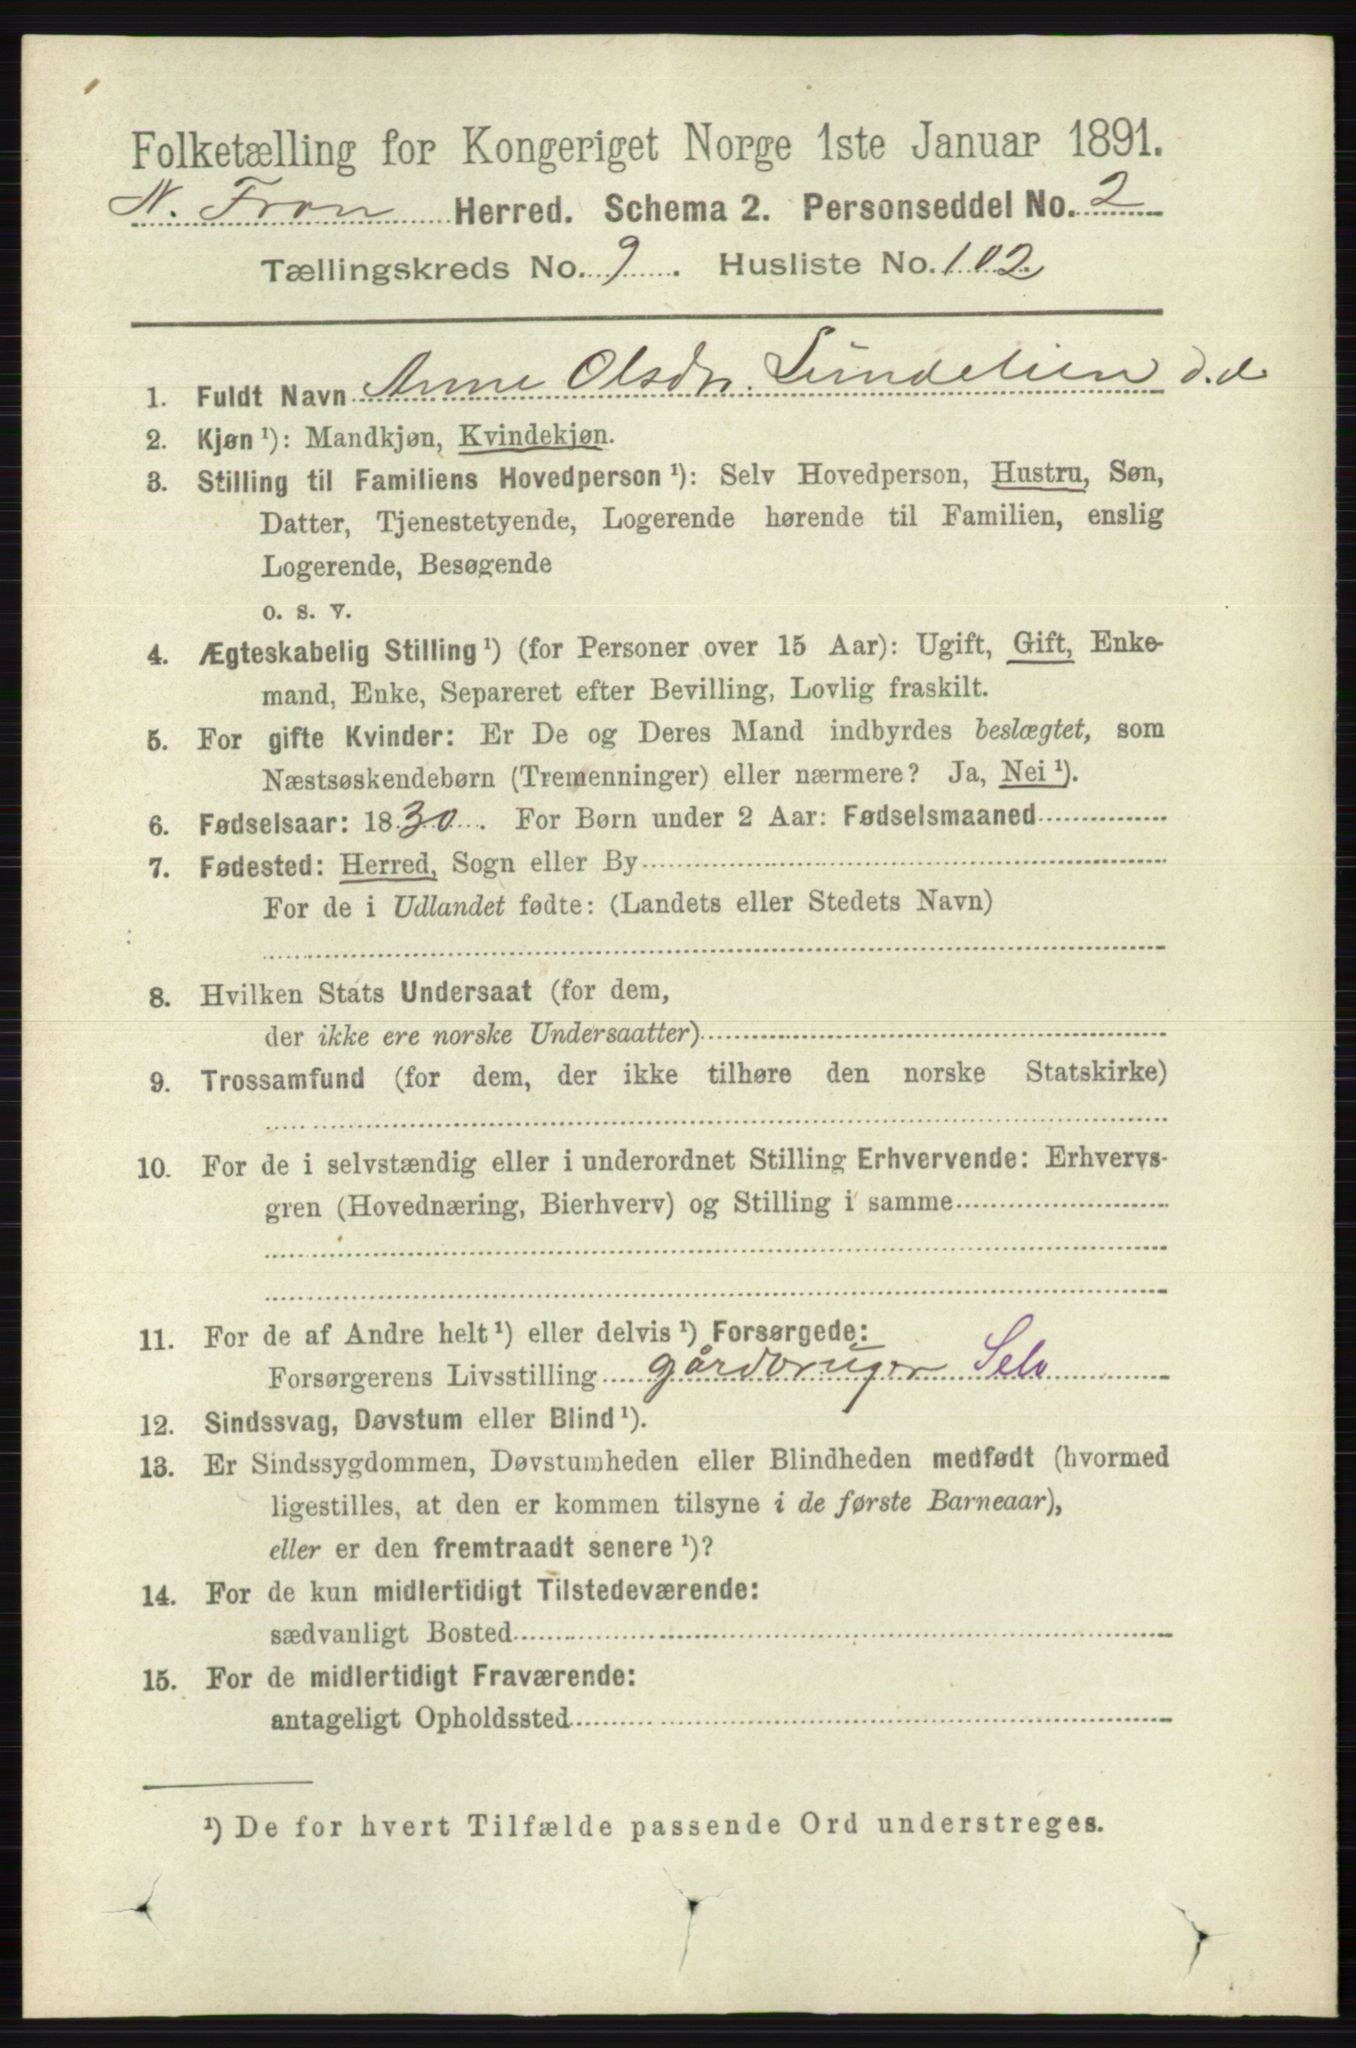 Folketælling for Kongeriget Norge 1ste Januar 1891.
N. Fron Herred. Schema 2. Personseddel No. 2
Tællingskreds No. 9. Husliste No. 102
1. Fuldt Navn Anne Olsdr. Lundelien d. d
2. Kjøn ¹): Mandkjøn, Kvindekjøn.
3. Stilling til Familiens Hovedperson ¹): Selv Hovedperson, Hustru, Søn,
Datter, Tjenestetyende, Logerende hørende til Familien, enslig
Logerende, Besøgende
o. s. v.
4. Ægteskabelig Stilling ¹) (for Personer over 15 Aar): Ugift, Gift, Enke-
mand, Enke, Separeret efter Bevilling, Lovlig fraskilt.
5. For gifte Kvinder: Er De og Deres Mand indbyrdes beslægtet, som
Næstsøskendebørn (Tremenninger) eller nærmere? Ja, Nei ¹).
6. Fødselsaar: 1830. For Børn under 2 Aar: Fødselsmaaned
7. Fødested: Herred, Sogn eller By
For de i Udlandet fødte: (Landets eller Stedets Navn)
8. Hvilken Stats Undersaat (for dem,
der ikke ere norske Undersaatter)
9. Trossamfund (for dem, der ikke tilhøre den norske Statskirke)
10. For de i selvstændig eller i underordnet Stilling Erhvervende: Erhvervs-
gren (Hovednæring, Bierhverv) og Stilling i samme
11. For de af Andre helt ¹) eller delvis ¹) Forsørgede:
Forsørgerens Livsstilling gårdbruger Selv
12. Sindssvag, Døvstum eller Blind ¹).
13. Er Sindssygdommen, Døvstumheden eller Blindheden medfødt (hvormed
ligestilles, at den er kommen tilsyne i de første Barneaar),
eller er den fremtraadt senere ¹)?
14. For de kun midlertidigt Tilstedeværende:
sædvanligt Bosted
15. For de midlertidigt Fraværende:
antageligt Opholdssted
¹) De for hvert Tilfælde passende Ord understreges.